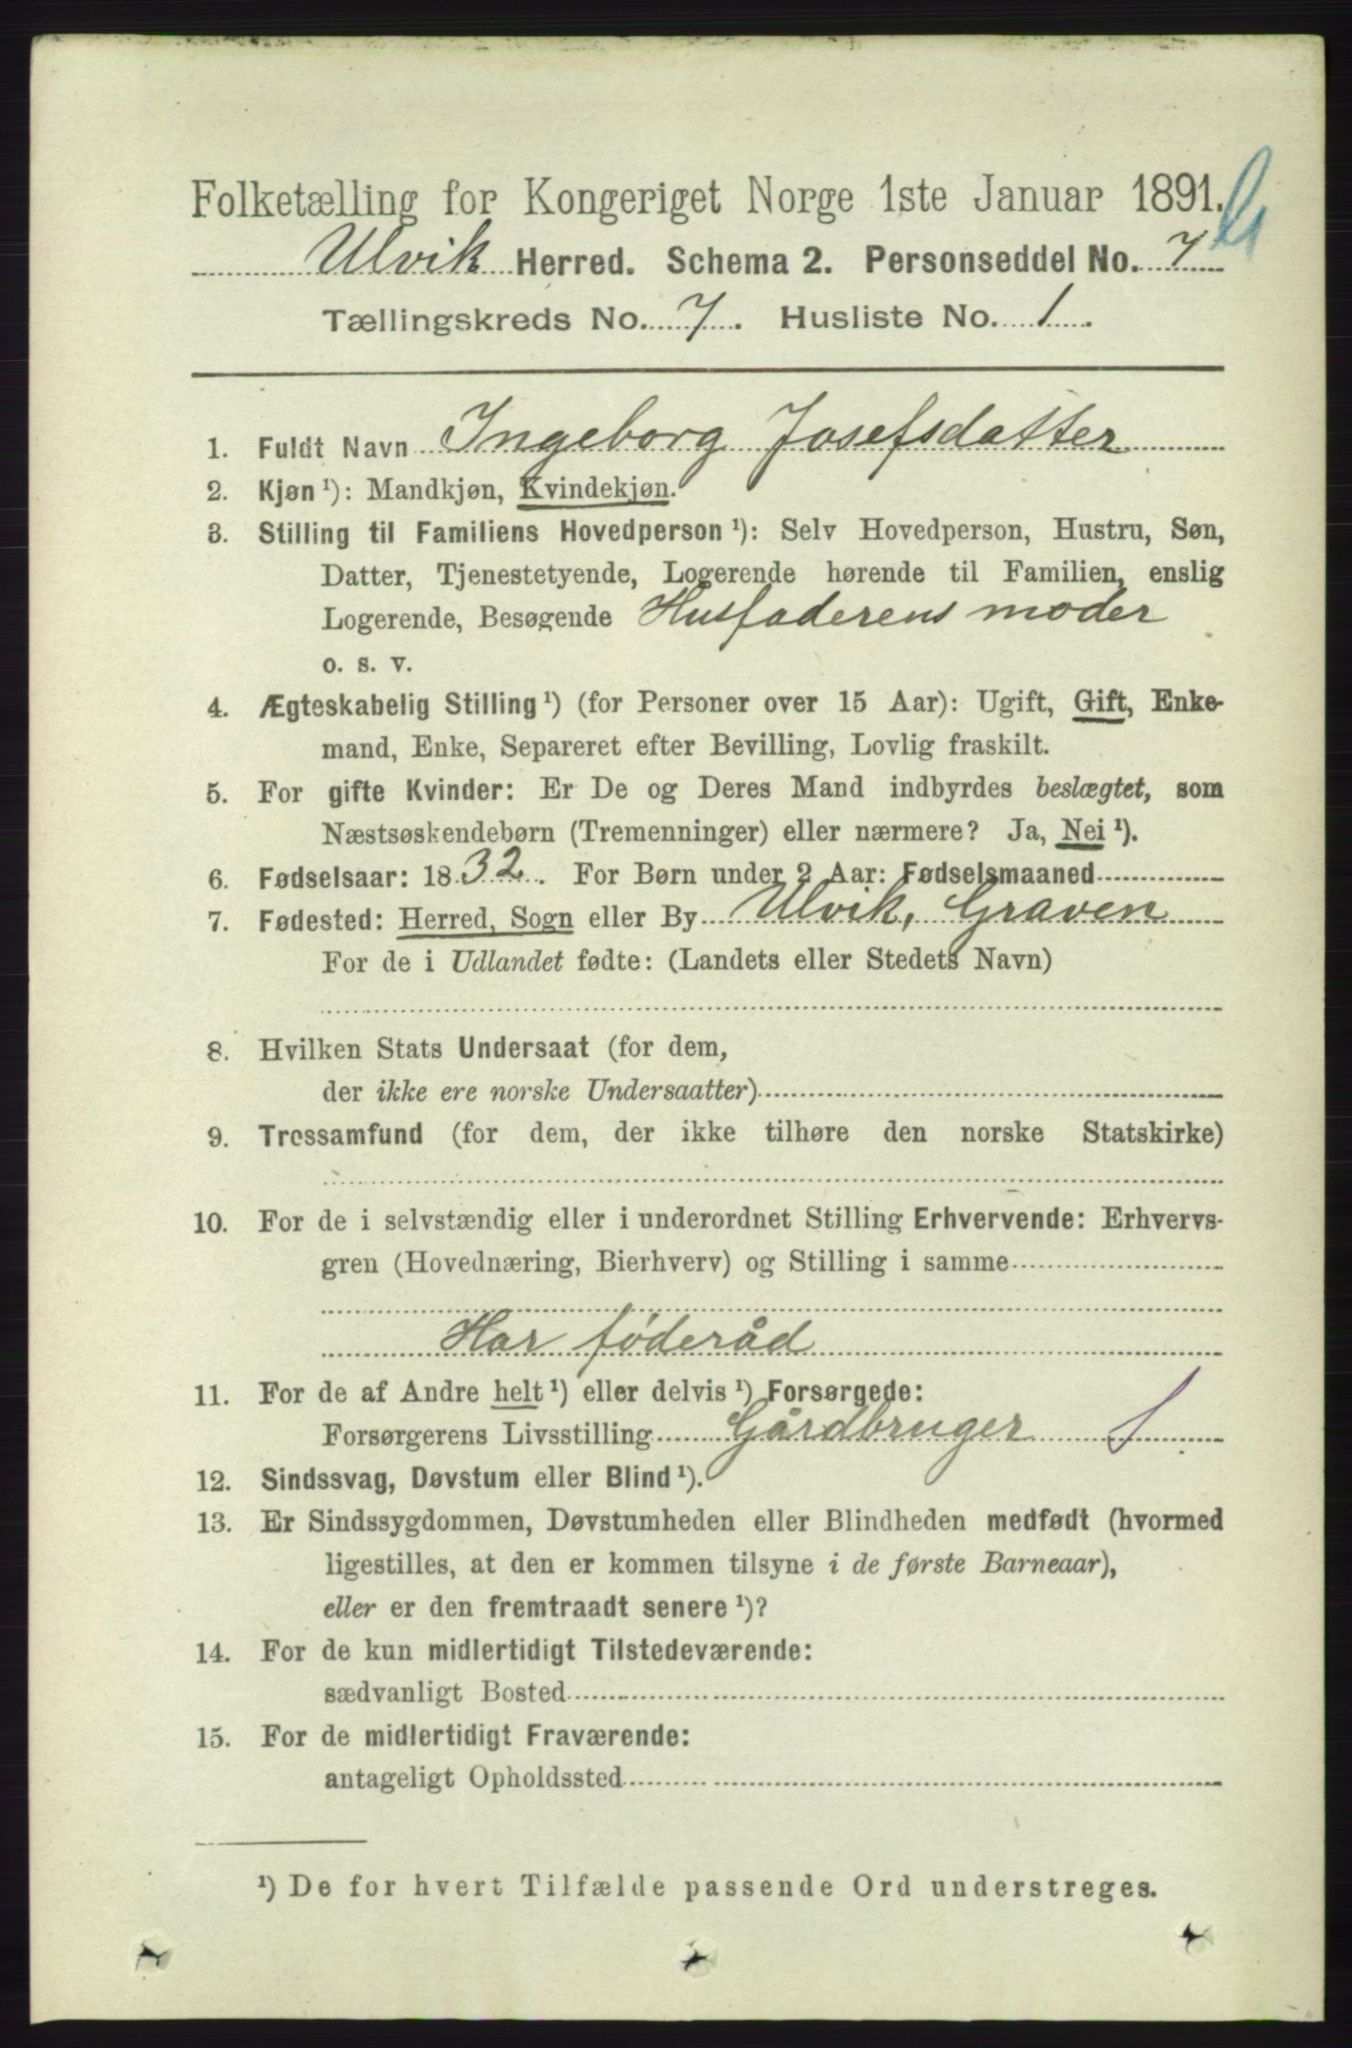 Folketælling for Kongeriget Norge 1ste Januar 1891.
Ulvik Herred. Schema 2. Personseddel No. 7
Tællingskreds No. 7. Husliste No. 1.
1. Fuldt Navn Ingeborg Josefsdatter
2. Kjøn ¹): Mandkjøn, Kvindekjøn.
3. Stilling til Familiens Hovedperson ¹): Selv Hovedperson, Hustru, Søn,
Datter, Tjenestetyende, Logerende hørende til Familien, enslig
Logerende, Besøgende Husfaderens moder
o. s. v.
4. Ægteskabelig Stilling ¹) (for Personer over 15 Aar): Ugift, Gift, Enke-
mand, Enke, Separeret efter Bevilling, Lovlig fraskilt.
5. For gifte Kvinder: Er De og Deres Mand indbyrdes beslægtet, som
Næstsøskendebørn (Tremenninger) eller nærmere? Ja, Nei ¹).
6. Fødselsaar: 1832. For Børn under 2 Aar: Fødselsmaaned
7. Fødested: Herred, Sogn eller By Ulvik, Graven
For de i Udlandet fødte: (Landets eller Stedets Navn)
8. Hvilken Stats Undersaat (for dem,
der ikke ere norske Undersaatter)
9. Trossamfund (for dem, der ikke tilhøre den norske Statskirke)
10. For de i selvstændig eller i underordnet Stilling Erhvervende: Erhvervs-
gren (Hovednæring, Bierhverv) og Stilling i samme
Har føderåd
11. For de af Andre helt ¹) eller delvis ¹) Forsørgede:
Forsørgerens Livsstilling Gårdbruger
12. Sindssvag, Døvstum eller Blind ¹).
13. Er Sindssygdommen, Døvstumheden eller Blindheden medfødt (hvormed
ligestilles, at den er kommen tilsyne i de første Barneaar),
eller er den fremtraadt senere ¹)?
14. For de kun midlertidigt Tilstedeværende:
sædvanligt Bosted
15. For de midlertidigt Fraværende:
antageligt Opholdssted
¹) De for hvert Tilfælde passende Ord understreges.